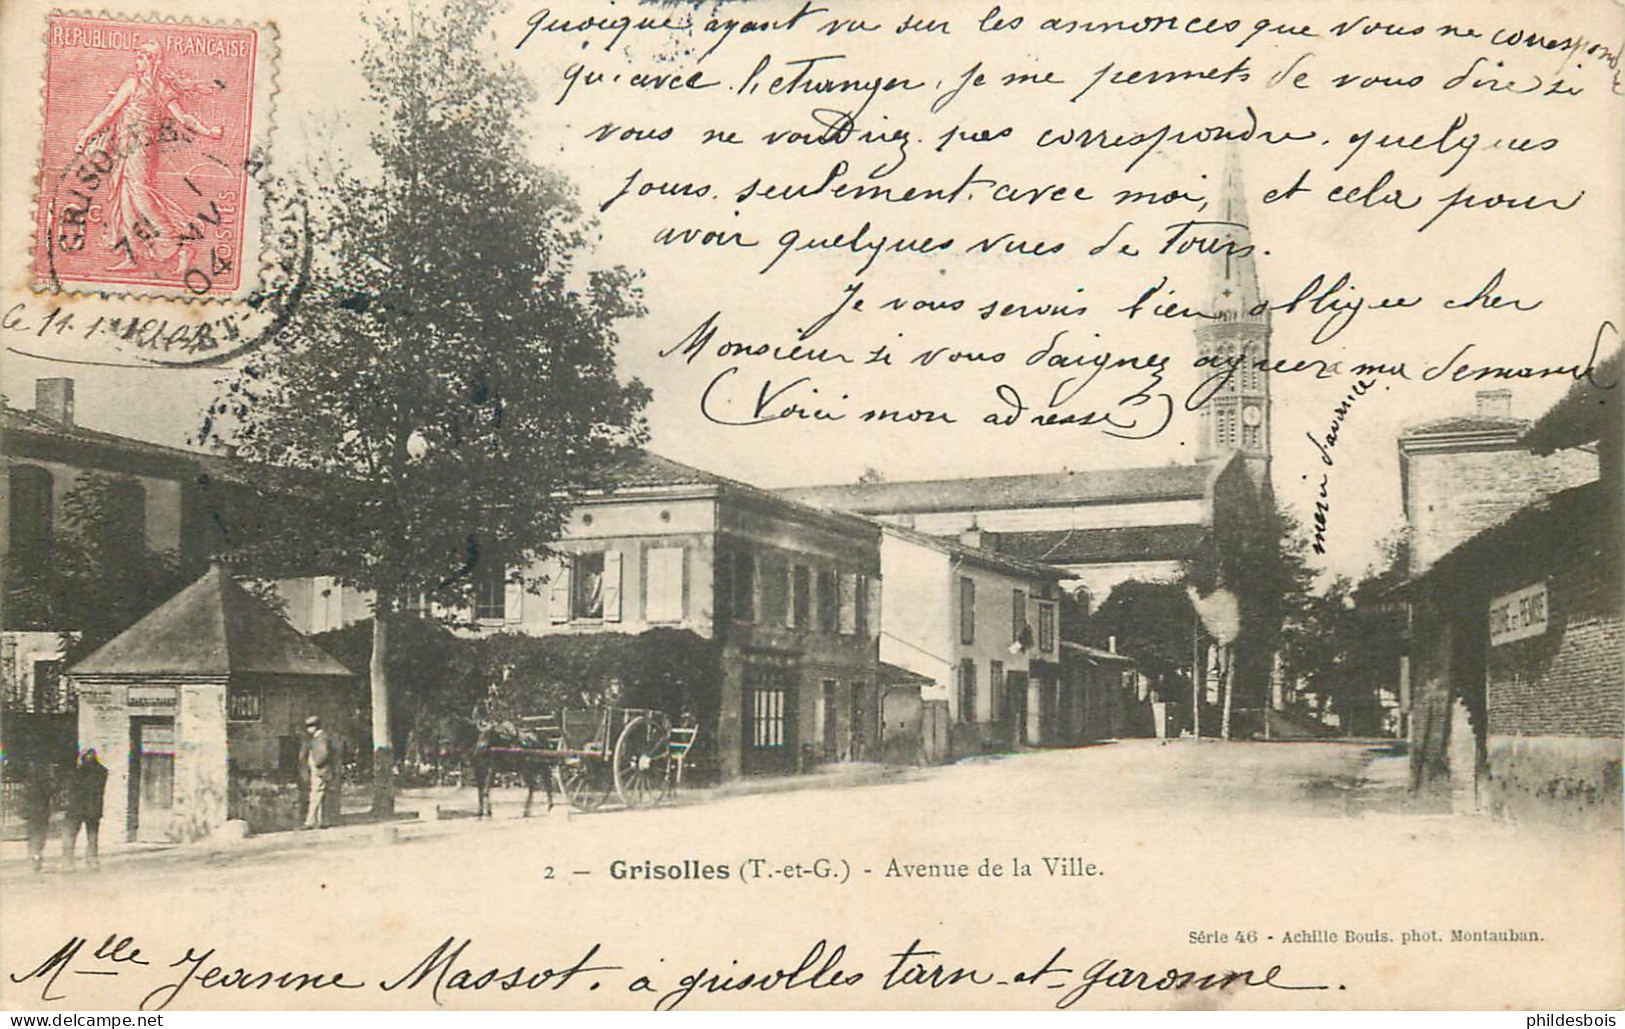 quoique ayant vu sur les annonces que vous ne correspondre
qu'avec l'etranger, je me permets de vous dire si
vous ne voudriez pas correspondre quelques
jours seulement avec moi, et cela pour
avoir quelques vues de Tours.
Je vous serais bien obligée cher
Monsieur si vous daignez agreer ma demande
merci d'avance
(Voici mon adresse)
REPUBLIQUE FRANÇAISE
POSTES
GRISOLLES
04
PICON
REMISE
2 — Grisolles (T.-et-G.) - Avenue de la Ville.
Série 46 - Achille Bouis. phot. Montauban.
Mlle Jeanne Massot. à grisolles tarn-et-garonne.
phildesbois